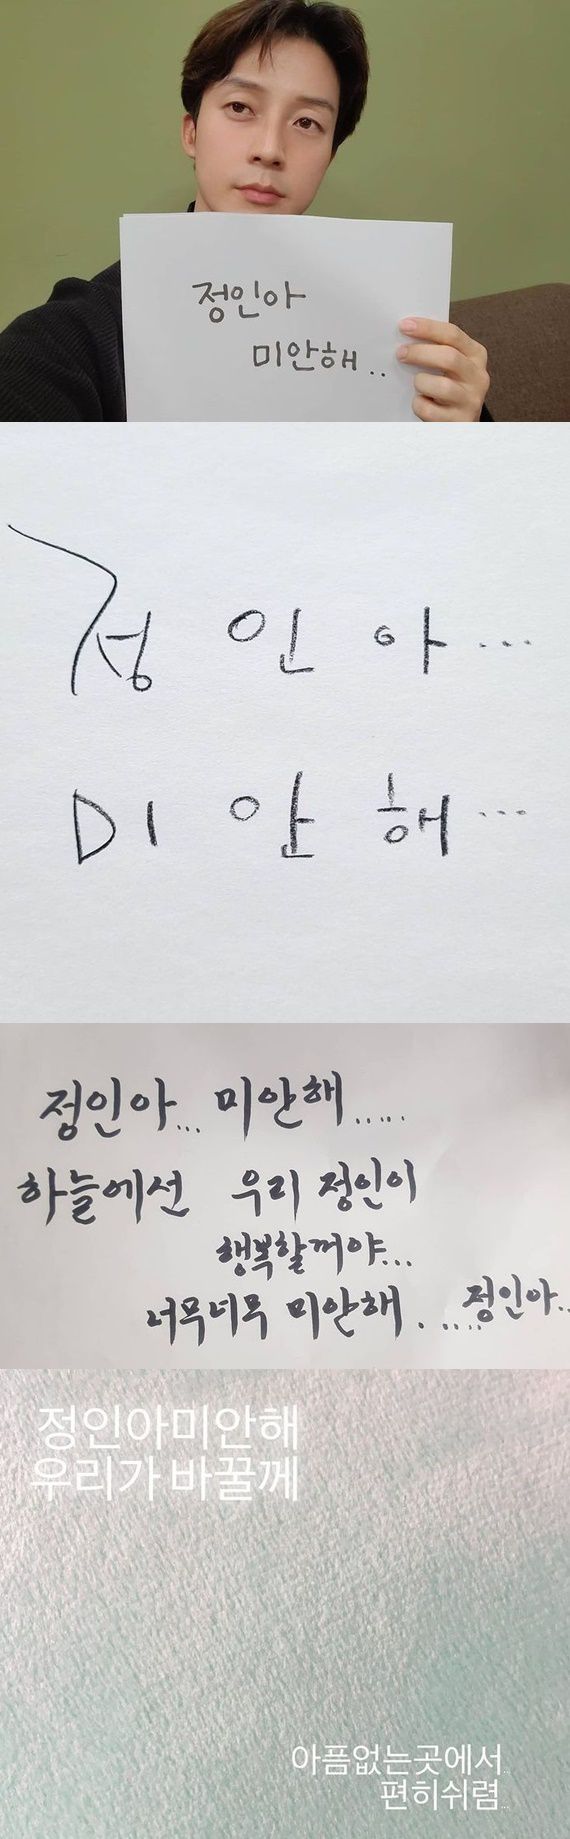 정인아
미안해..
정인아...
미안해...
정인아... 미안해.....
하늘에선 우리 정인이
행복할꺼야...
너무너무 미안해......정인아..
정인아미안해
우리가 바꿀께
아픔없는곳에서..
편히쉬렴...